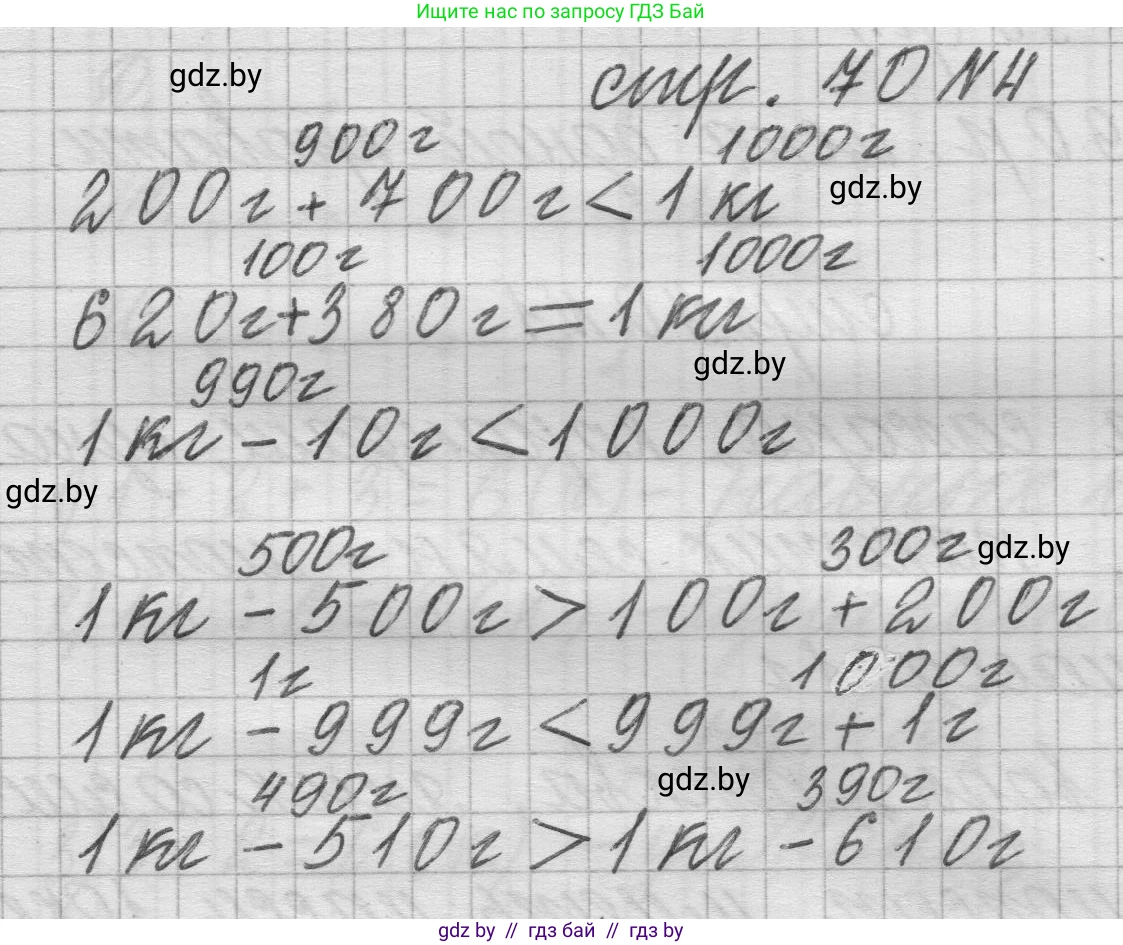 Ищите нас по запросу ГДЗ Бай
gdz.by стр. 70 N4
900г 1000г
200г + 700г < 1 кг gdz.by
100г 1000г
620г+380г = 1 кг
990г gdz.by
1 кг - 10г < 1000г
gdz.by
500г 300г gdz.by
1 кг - 500г > 100г + 200г
1г 1000г
1 кг - 999г < 999г + 1г
490г gdz.by 390г
1 кг - 510г > 1 кг - 610г
gdz by // гдз бай // гдз by